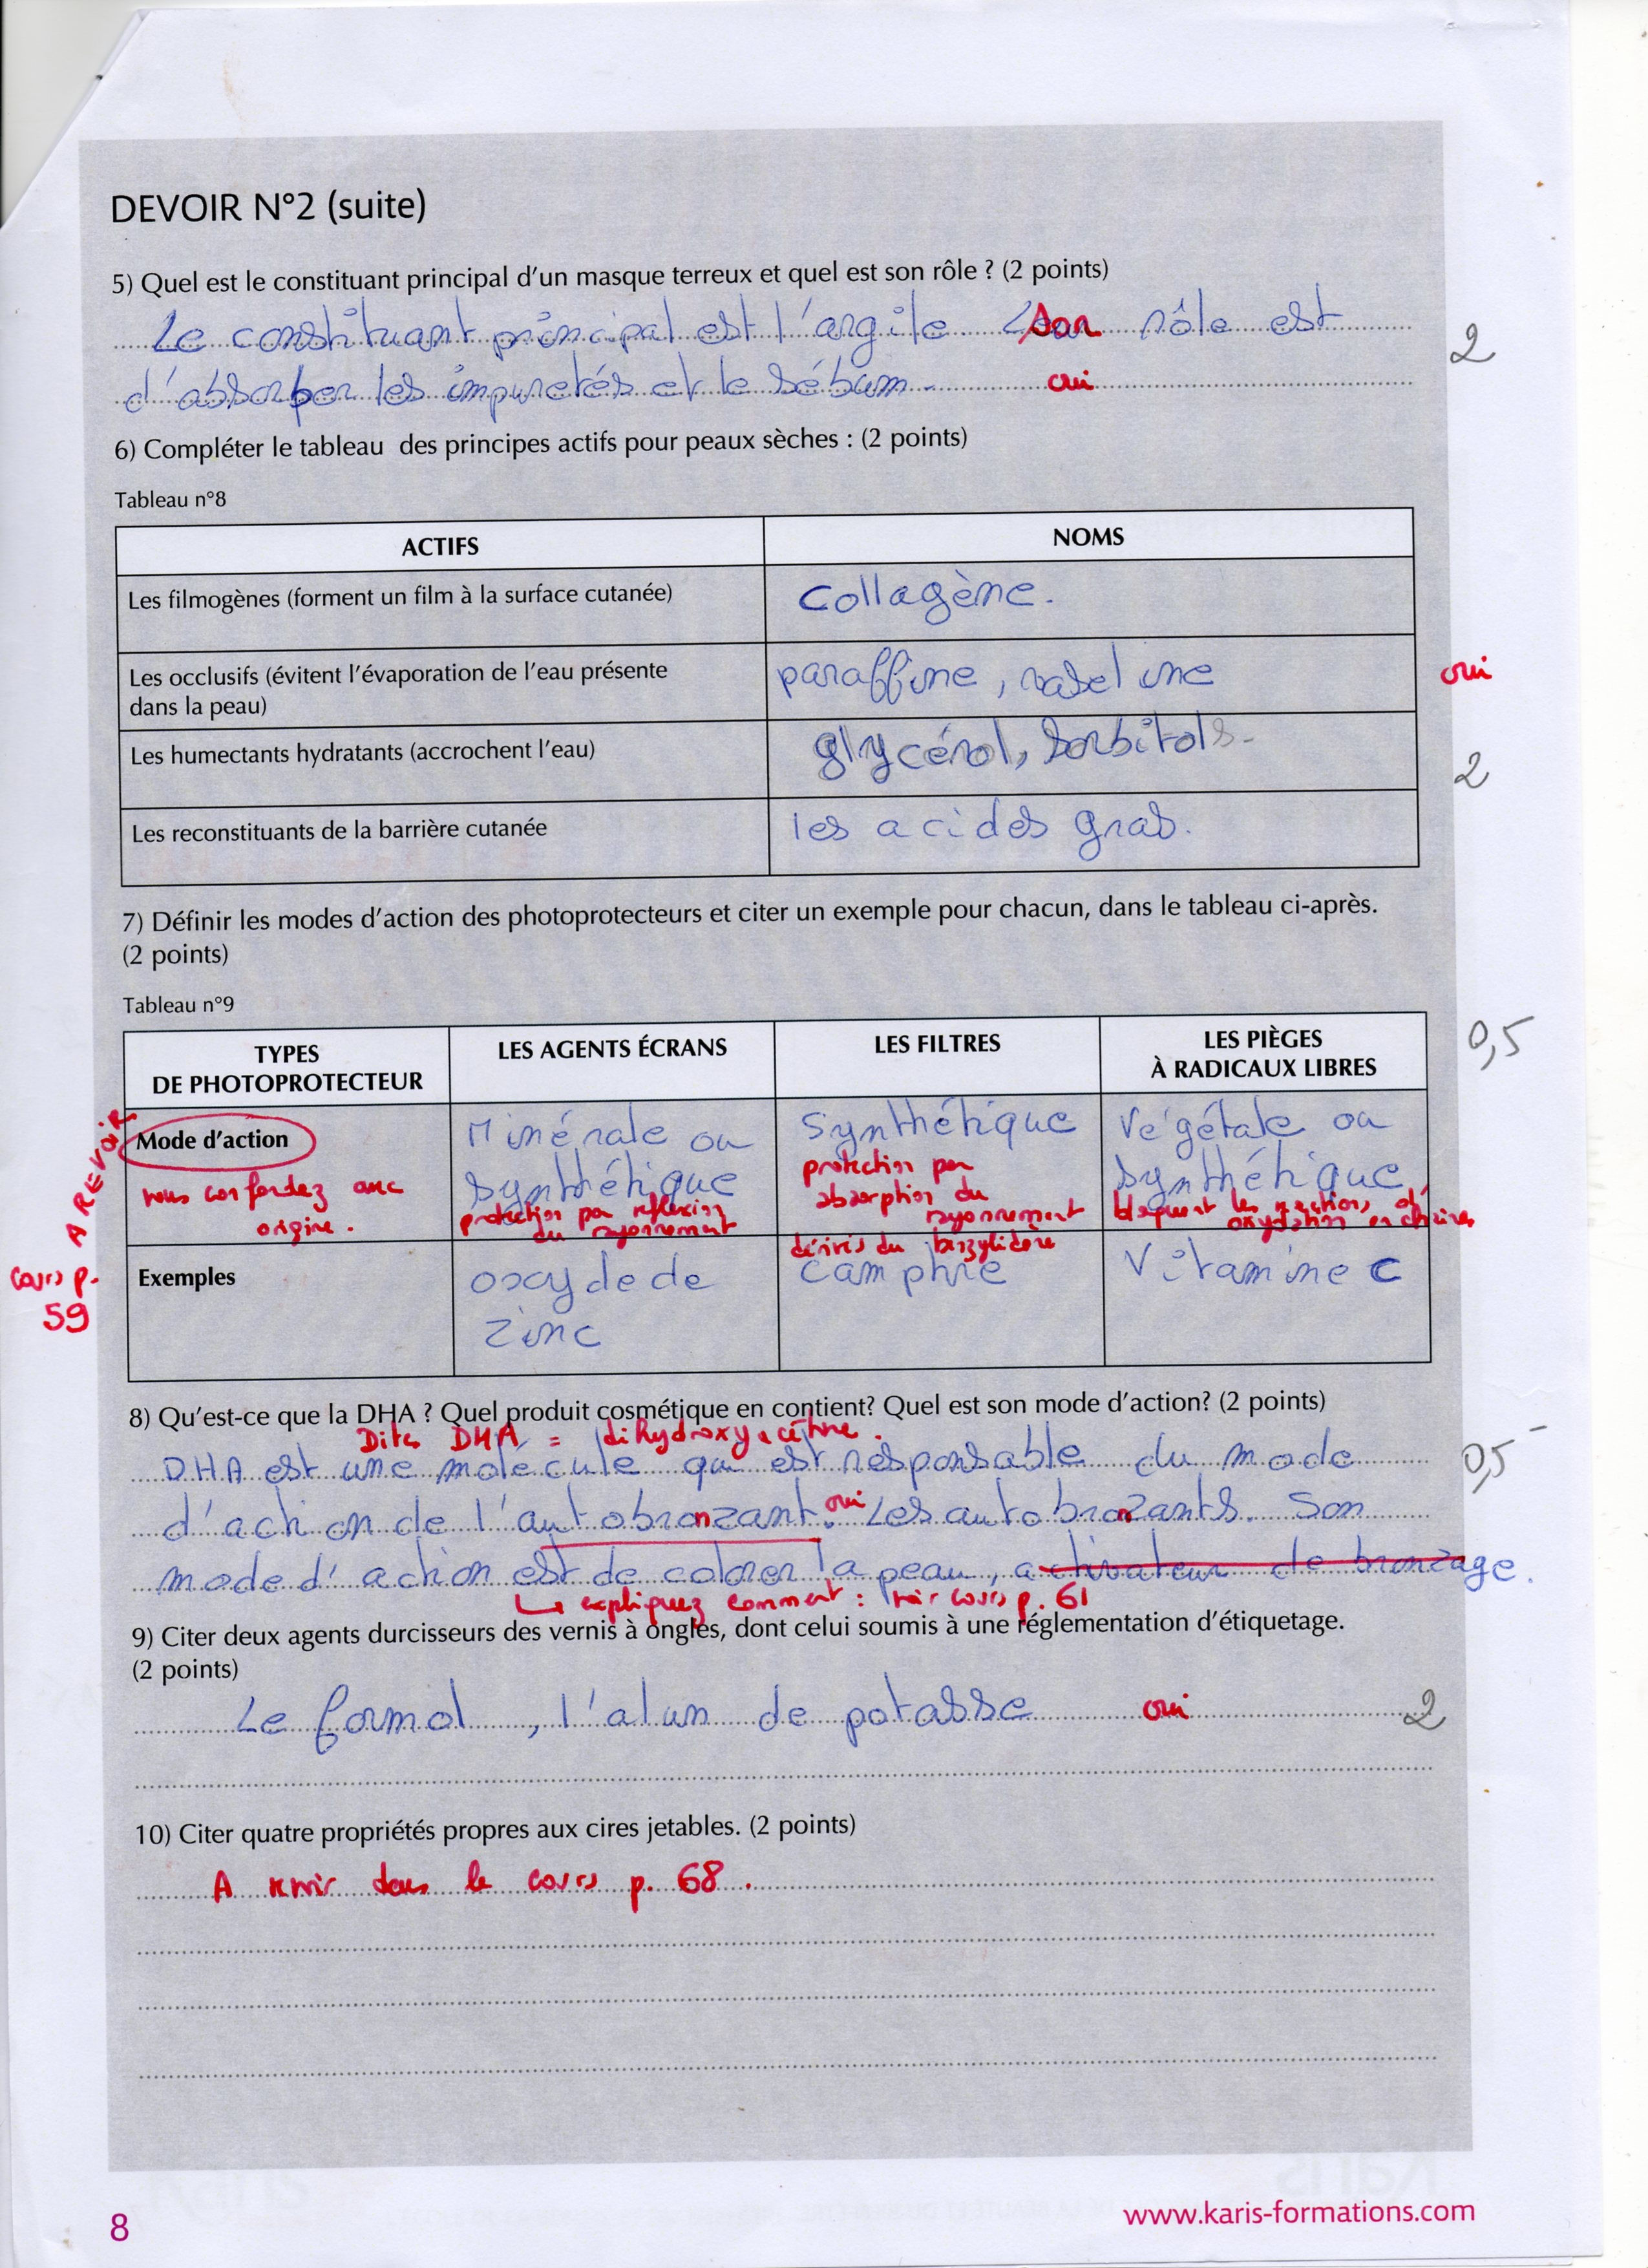 DEVOIR N°2 (suite)
5) Quel est le constituant principal d'un masque terreux et quel est son rôle ? (2 points)
Le constituant principal est l'argile Son rôle est
2
d'absorber les impuretés et le sébum. oui
6) Compléter le tableau des principes actifs pour peaux sèches : (2 points)
Tableau n°8
ACTIFS NOMS
Les filmogènes (forment un film à la surface cutanée) Collagène.
Les occlusifs (évitent l'évaporation de l'eau présente
dans la peau) paraffine, vaseline oui
Les humectants hydratants (accrochent l'eau) glycérol, sorbitols.
2
Les reconstituants de la barrière cutanée les acides gras.
7) Définir les modes d'action des photoprotecteurs et citer un exemple pour chacun, dans le tableau ci-après.
(2 points)
Tableau n°9
0,5
TYPES
DE PHOTOPROTECTEUR
LES AGENTS ÉCRANS
LES FILTRES
LES PIÈGES
À RADICAUX LIBRES
A REVOIR
Mode d'action
vous confondez avec
origine.
Minérale ou
synthétique
protection par réflexion
du rayonnement
Synthétique
protection par
absorption du
rayonnement
Végétale ou
synthétique
bloquent les réactions d'
oxydation en chaînes
cours p.
59
Exemples
oxyde de
zinc
dérivés du benzylidène
camphre
Vitamine C
8) Qu'est-ce que la DHA ? Quel produit cosmétique en contient? Quel est son mode d'action? (2 points)
Dites DHA = dihydroxyacétone.
DHA est une molécule qui est responsable du mode
0,5
d'action de l'autobronzant. oui Les autobronzants. Son
mode d'action est de colorer la peau, activateur de bronzage.
↳ expliquez comment : voir cours p. 61
9) Citer deux agents durcisseurs des vernis à ongles, dont celui soumis à une réglementation d'étiquetage.
(2 points)
Le formol, l'alun de potasse oui 2
10) Citer quatre propriétés propres aux cires jetables. (2 points)
A revoir dans le cours p. 68.
8
www.karis-formations.com